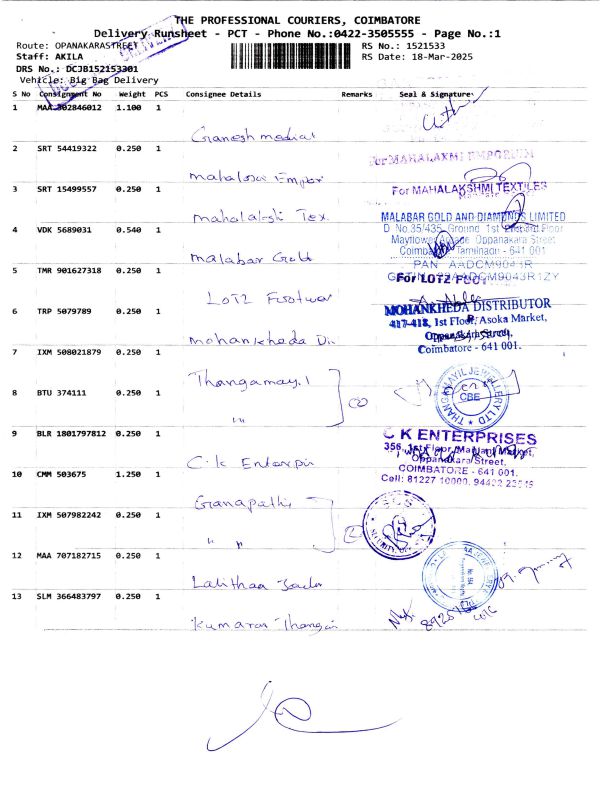 THE PROFESSIONAL COURIERS, COIMBATORE
Delivery Runsheet - PCT - Phone No.:0422-3505555 - Page No.:1
Route: OPANAKARASTREET
RS No.: 1521533
Staff: AKILA
RS Date: 18-Mar-2025
DRS No.: DCJB152153301
Vehicle: Big Bag Delivery
S No Consignment No Weight PCS Consignee Details Remarks Seal & Signature
1 MAA 302846012 1.100 1
Ganesh medical
2 SRT 54419322 0.250 1
For MAHALAXMI EMPORIUM
mahalaxmi Empor
3 SRT 15499557 0.250 1
For MAHALAKSHMI TEXTILES
mahalakshi Tex.
4 VDK 5689031 0.540 1
MALABAR GOLD AND DIAMONDS LIMITED
D. No.35/435, Ground 1st Floor
Mayflower Oppanakara Street
Coimbatore Tamilnadu - 641 001
malabar Gold
5 TMR 901627318 0.250 1
PAN AADCM9043R
For LOTZ FOOT
LOTZ Footwear
6 TRP 5079789 0.250 1
MOHANKHEDA DISTRIBUTOR
417-418, 1st Floor, Asoka Market,
Oppanakara Street,
Coimbatore - 641 001.
mohankheda Di
7 IXM 508021879 0.250 1
Thangamayil
8 BTU 374111 0.250 1
THANGAMAYIL JEWELLERY LTD
CBE
"
9 BLR 1801797812 0.250 1
C K ENTERPRISES
356, 1st Floor, Market,
Oppanakara Street,
COIMBATORE - 641 001.
Cell: 81227 10000,
C.K Enterpri
10 CMM 503675 1.250 1
Ganapathi
11 IXM 507982242 0.250 1
SECURITY
" "
12 MAA 707182715 0.250 1
Lalithaa
13 SLM 366483797 0.250 1
Kumaran Thangam